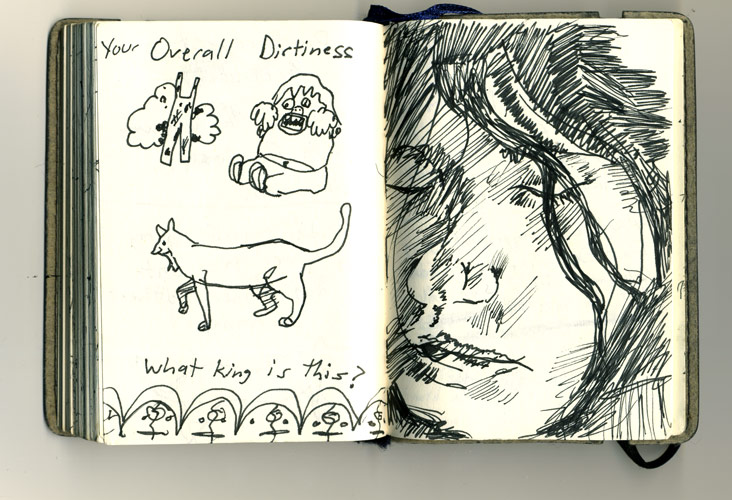 Your Overall Dirtiness
What king is this?